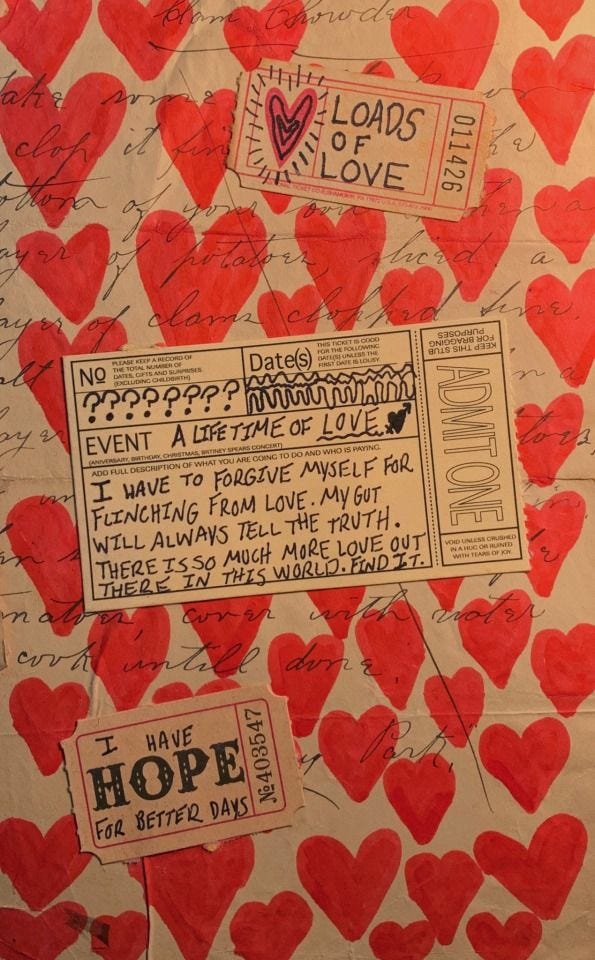 Clam Chowder
take some
chop it fine
bottom of your
layer of potatoes, sliced. a
layer of clams chopped fine.
LOADS
OF
LOVE
011426
No
PLEASE KEEP A RECORD OF
THE TOTAL NUMBER OF
DATES, GIFTS AND SURPRISES.
(EXCLUDING CHILDBIRTH)
????????
Date(s)
THIS TICKET IS GOOD
FOR THE FOLLOWING
DATE(S) UNLESS THE
FIRST DATE IS LOUSY.
EVENT A LIFETIME OF LOVE
(ANIVERSARY, BIRTHDAY, CHRISTMAS, BRITNEY SPEARS CONCERT)
ADD FULL DESCRIPTION OF WHAT YOU ARE GOING TO DO AND WHO IS PAYING.
I HAVE TO FORGIVE MYSELF FOR
FLINCHING FROM LOVE. MY GUT
WILL ALWAYS TELL THE TRUTH.
THERE IS SO MUCH MORE LOVE OUT
THERE IN THIS WORLD. FIND IT.
KEEP THIS STUB
FOR BRAGGING
PURPOSES
ADMIT ONE
VOID UNLESS CRUSHED
IN A HUG OR RUINED
WITH TEARS OF JOY.
cover with water
cook untill done.
I HAVE
HOPE
FOR BETTER DAYS
No 403547